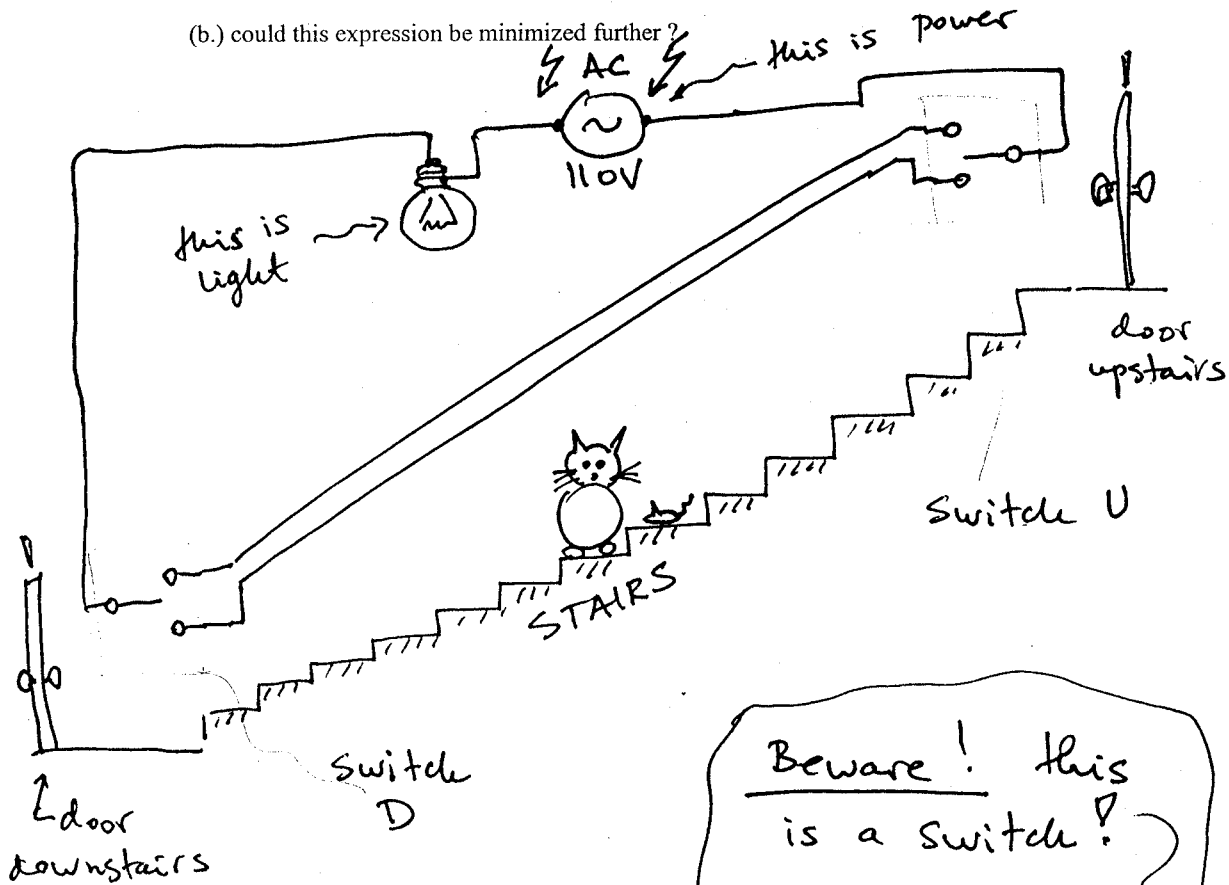 (b.) could this expression be minimized further ?
this is power
AC
110V
this is
light
door
upstairs
Switch U
STAIRS
Switch
D
door
downstairs
Beware! this
is a switch!